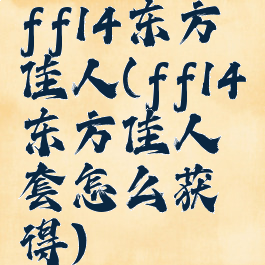 ff14东方
佳人(ff14
东方佳人
套怎么获
得)